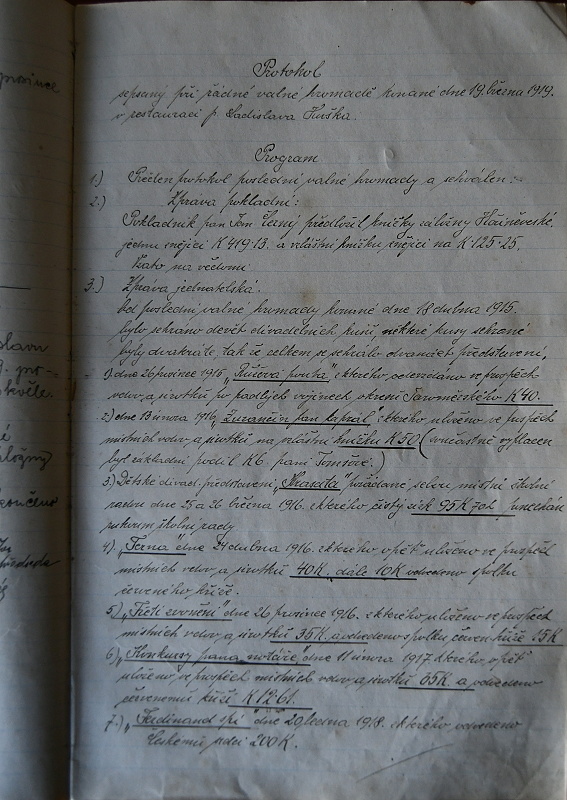 Protokol
sepsaný při řádné valné hromadě konané dne 19. března 1919.
v restauraci p. Ladislava Huška.
Program
1.) Přečten protokol poslední valné hromady a schválen.
2.) Zpráva pokladní:
Pokladník pan Jan Černý předložil knížky záložny
jednu znějící K 419·13. a vlastní knížku znějící na K·125·25.
Vzato na vědomí
3.) Zpráva jednatelská.
Od poslední valné hromady konané dne 18 dubna 1915.
bylo sehráno devět divadelních kusů, některé kusy sehrané
byly dvakráte, tak že celkem se sehrálo dvanáct představení,
1) dne 26 prosince 1915 „Růžová pouta" z kterého odevzdáno ve prospěch
vdov a sirotků po padlých vojínech okresu Jaroměřského K 40.
2.) dne 13 února 1916 „Zuzančin pan kaprál" z kterého uloženo ve prospěch
místních vdov a sirotků na vlastní knížku K 50 (současně vyplacen
byl základní podíl K6. paní
3.) Dětské divad. představení pořádané selou místní školní
radou dne 25 a 26 března 1916. z kterého čistý zisk 95K 70h ponechán
školní rady
4.) „Terna" dne 24 dubna 1916. z kterého opět uloženo ve prospěch
místních vdov a sirotků 40K. dále 10K odvedeno spolku
červeného kříže.
5.) „Třetí zvonění" dne 26 prosince 1916. z kterého uloženo ve prospěch
místních vdov a sirotků 35K. a odvedeno spolku červen. kříže 15K
6.) „Konkursy pana notáře" dne 11 února 1917 z kterého opět
uloženo ve prospěch místních vdov a sirotků 65K. a odvedeno
červenému kříži K 12·61.
7.) dne 20 ledna 1918. z kterého odvedeno
Českému srdci 200K.